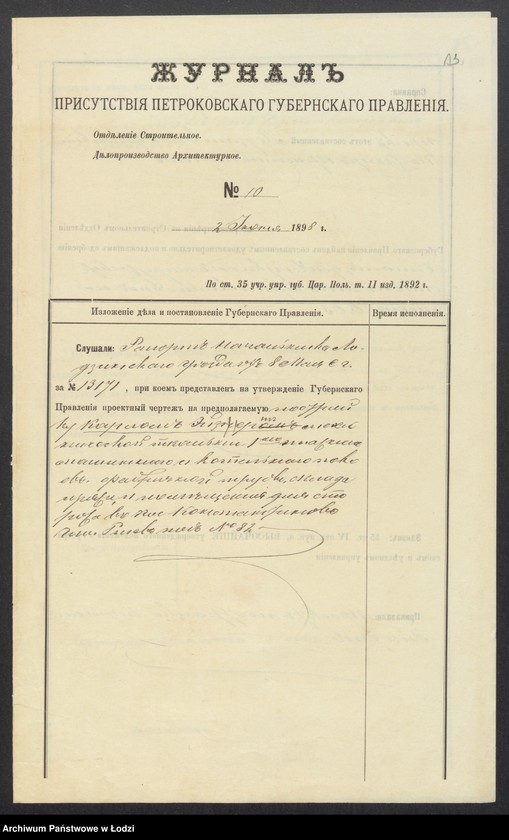 13
ЖУРНАЛЪ
ПРИСУТСТВІЯ ПЕТРОКОВСКАГО ГУБЕРНСКАГО ПРАВЛЕНІЯ.
Отдѣленіе Строительное.
Дѣлопроизводство Архитектурное.
№ 10
2 1898 г.
По ст. 35 учр. упр. губ. Цар. Поль. т. II изд. 1892 г.
Изложеніе дѣла и постановленіе Губернскаго Правленія.
Время исполненія.
Слушали: Рапортъ Начальника Ло-
дзинскаго уѣзда отъ 8 Мая с. г.
за № 13171, при коемъ представленъ на утвержденіе Губернскаго
Правленія проектный чертежъ на предполагаемую постройку
Карломъ
паровой
котельнаго
фабричной трубы, склада
пряжи и помѣщенія для сто
рожа въ пос. Константиновѣ
подъ № 82
Archiwum Państwowe w Łodzi